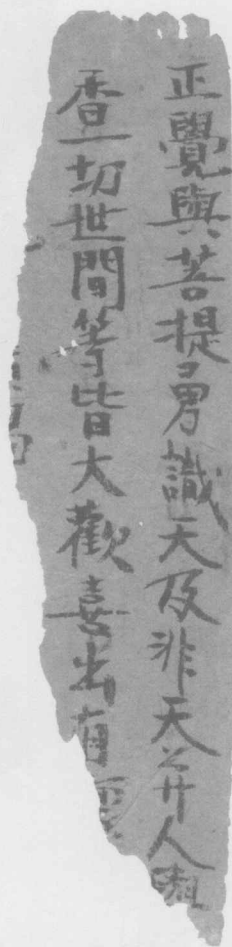 正覺與菩提勇識天及非天并人
香一切世間等皆大歡喜出有壞